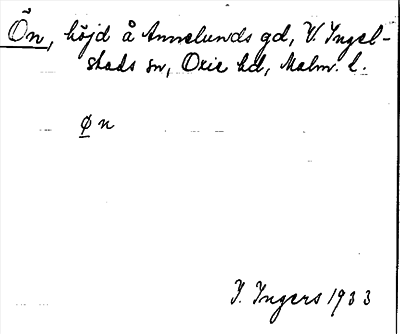 Ön, höjd å Annelunds gd, V. Ingel-
stads sn, Oxie hd, Malm. l.
øn
I. Ingers 1933